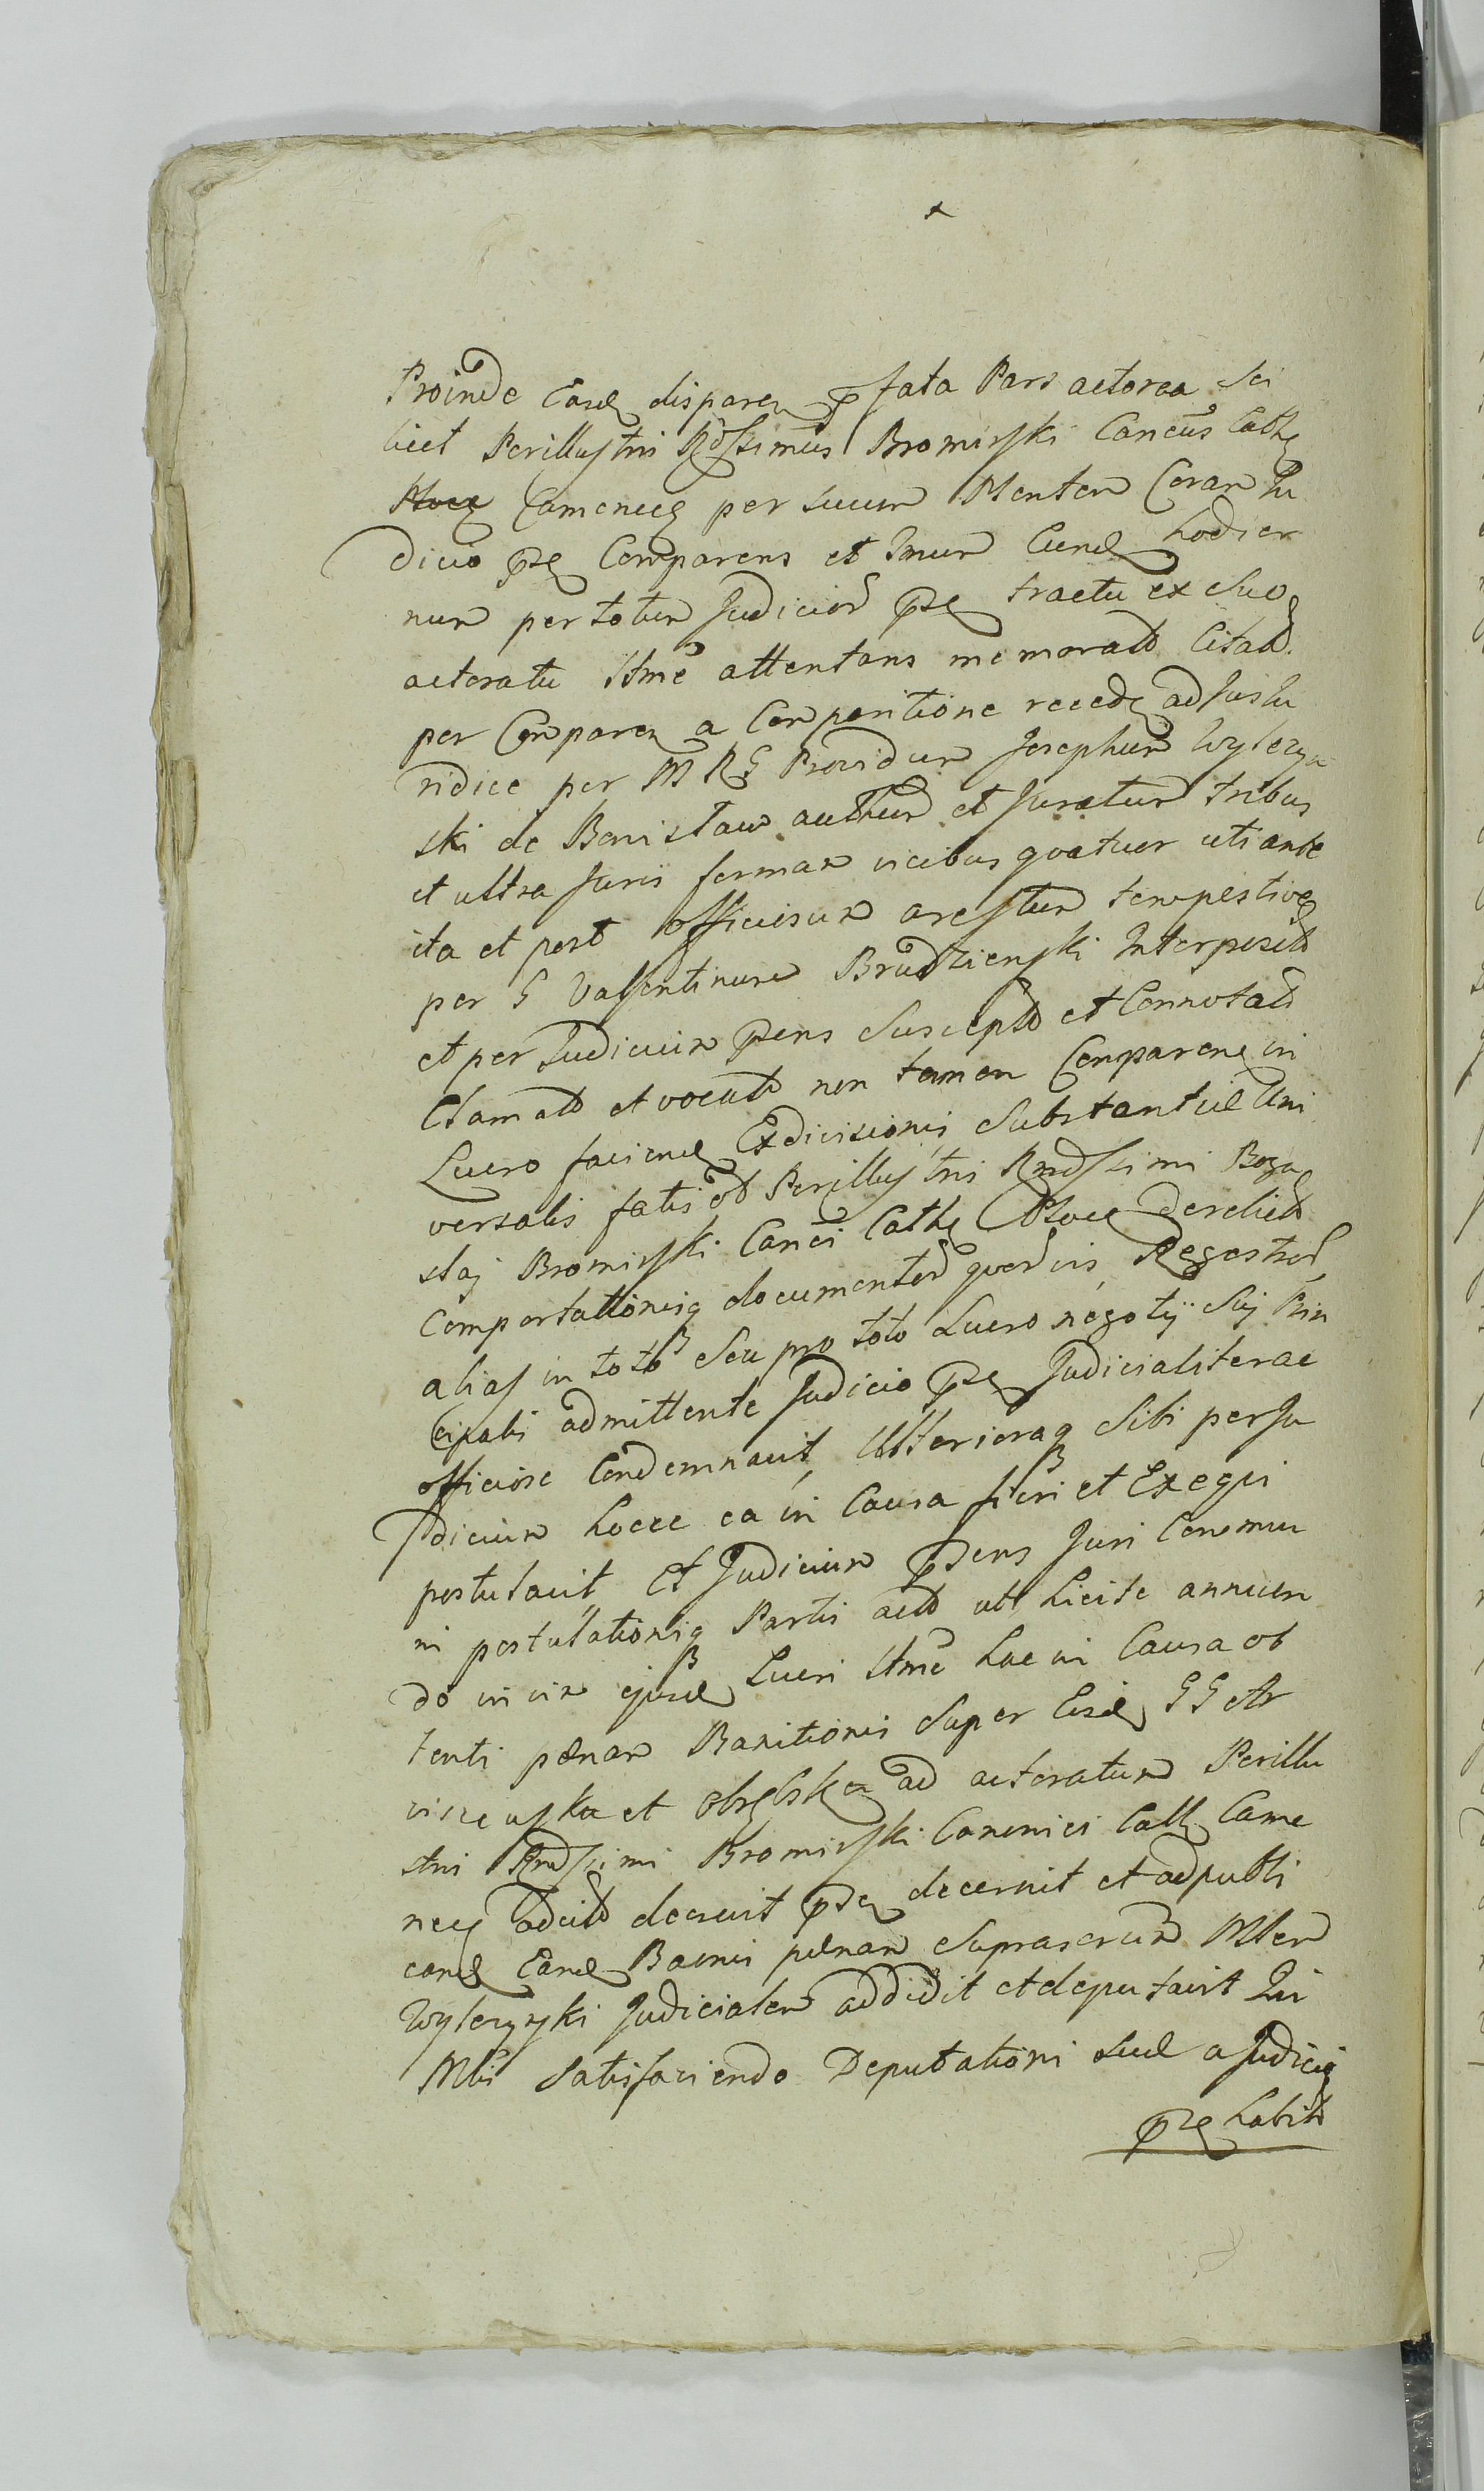 x
Proinde Easd disparen pfata Pars actorea Sci
licet Perillustris Rdssimus Bromirski Cancus Cathe
Camenecen per suum Mlentem Coram Ju
dicio pse Comparens et Imum Cund hodier
num per totum Judicior pse tractu ex Suo
actoratu ltme attentans memorato Citato
per Comparen a Comparitione recede ad Jus Ju
ridice per M R G Providum Josephum Wylezyn
ski de Bonislaw authum et Juratum tribus
et ultra Juris formam vicibus quatuor uti ante
ita et post officiosum arestum tempestive
per G Valentinum Brudzienski Interposito
et per Judicium pens Suscepto et Connotato
Clamato et vocato non tamen Comparen in
Lucro faciend Exdivisionis Substantiae Uni
versalis fatis ob Perillustris Rndssimi Bogu
slai Bromirski Canci Cathe Ploce derelicto
Comportationisq documentor quorvis Regestror
alias in toto Seu pro toto Lucro negotij Sui Prin
cipali admittente Judicio pse Judicialiter ac
officiose Condemnavit, Ulterioraq Sibi per Ju
dicium hocce ea in Causa fieri et Exequi
postulavit, Et Judicium psens Juri Commu
ni postulationiq Partis acto uti Licite annuen
do in vim ejusd Lucri ltme hac in Causa ob
tenti paenam Banitionis Super Eisd G G Ar
ciszewska et Obrębska ad actoratum Perillu
stris Rndssimi Bromirski Canonici Cath Came
necen adcito decrevit pse decernit et ad publi
cand Eand Bannis paenam Suprascrum Mlem
Wylezynski Judicialem addidit et deputavit Qui
Mlis Satisfaciendo Deputationi suae a Judicio
pse habito